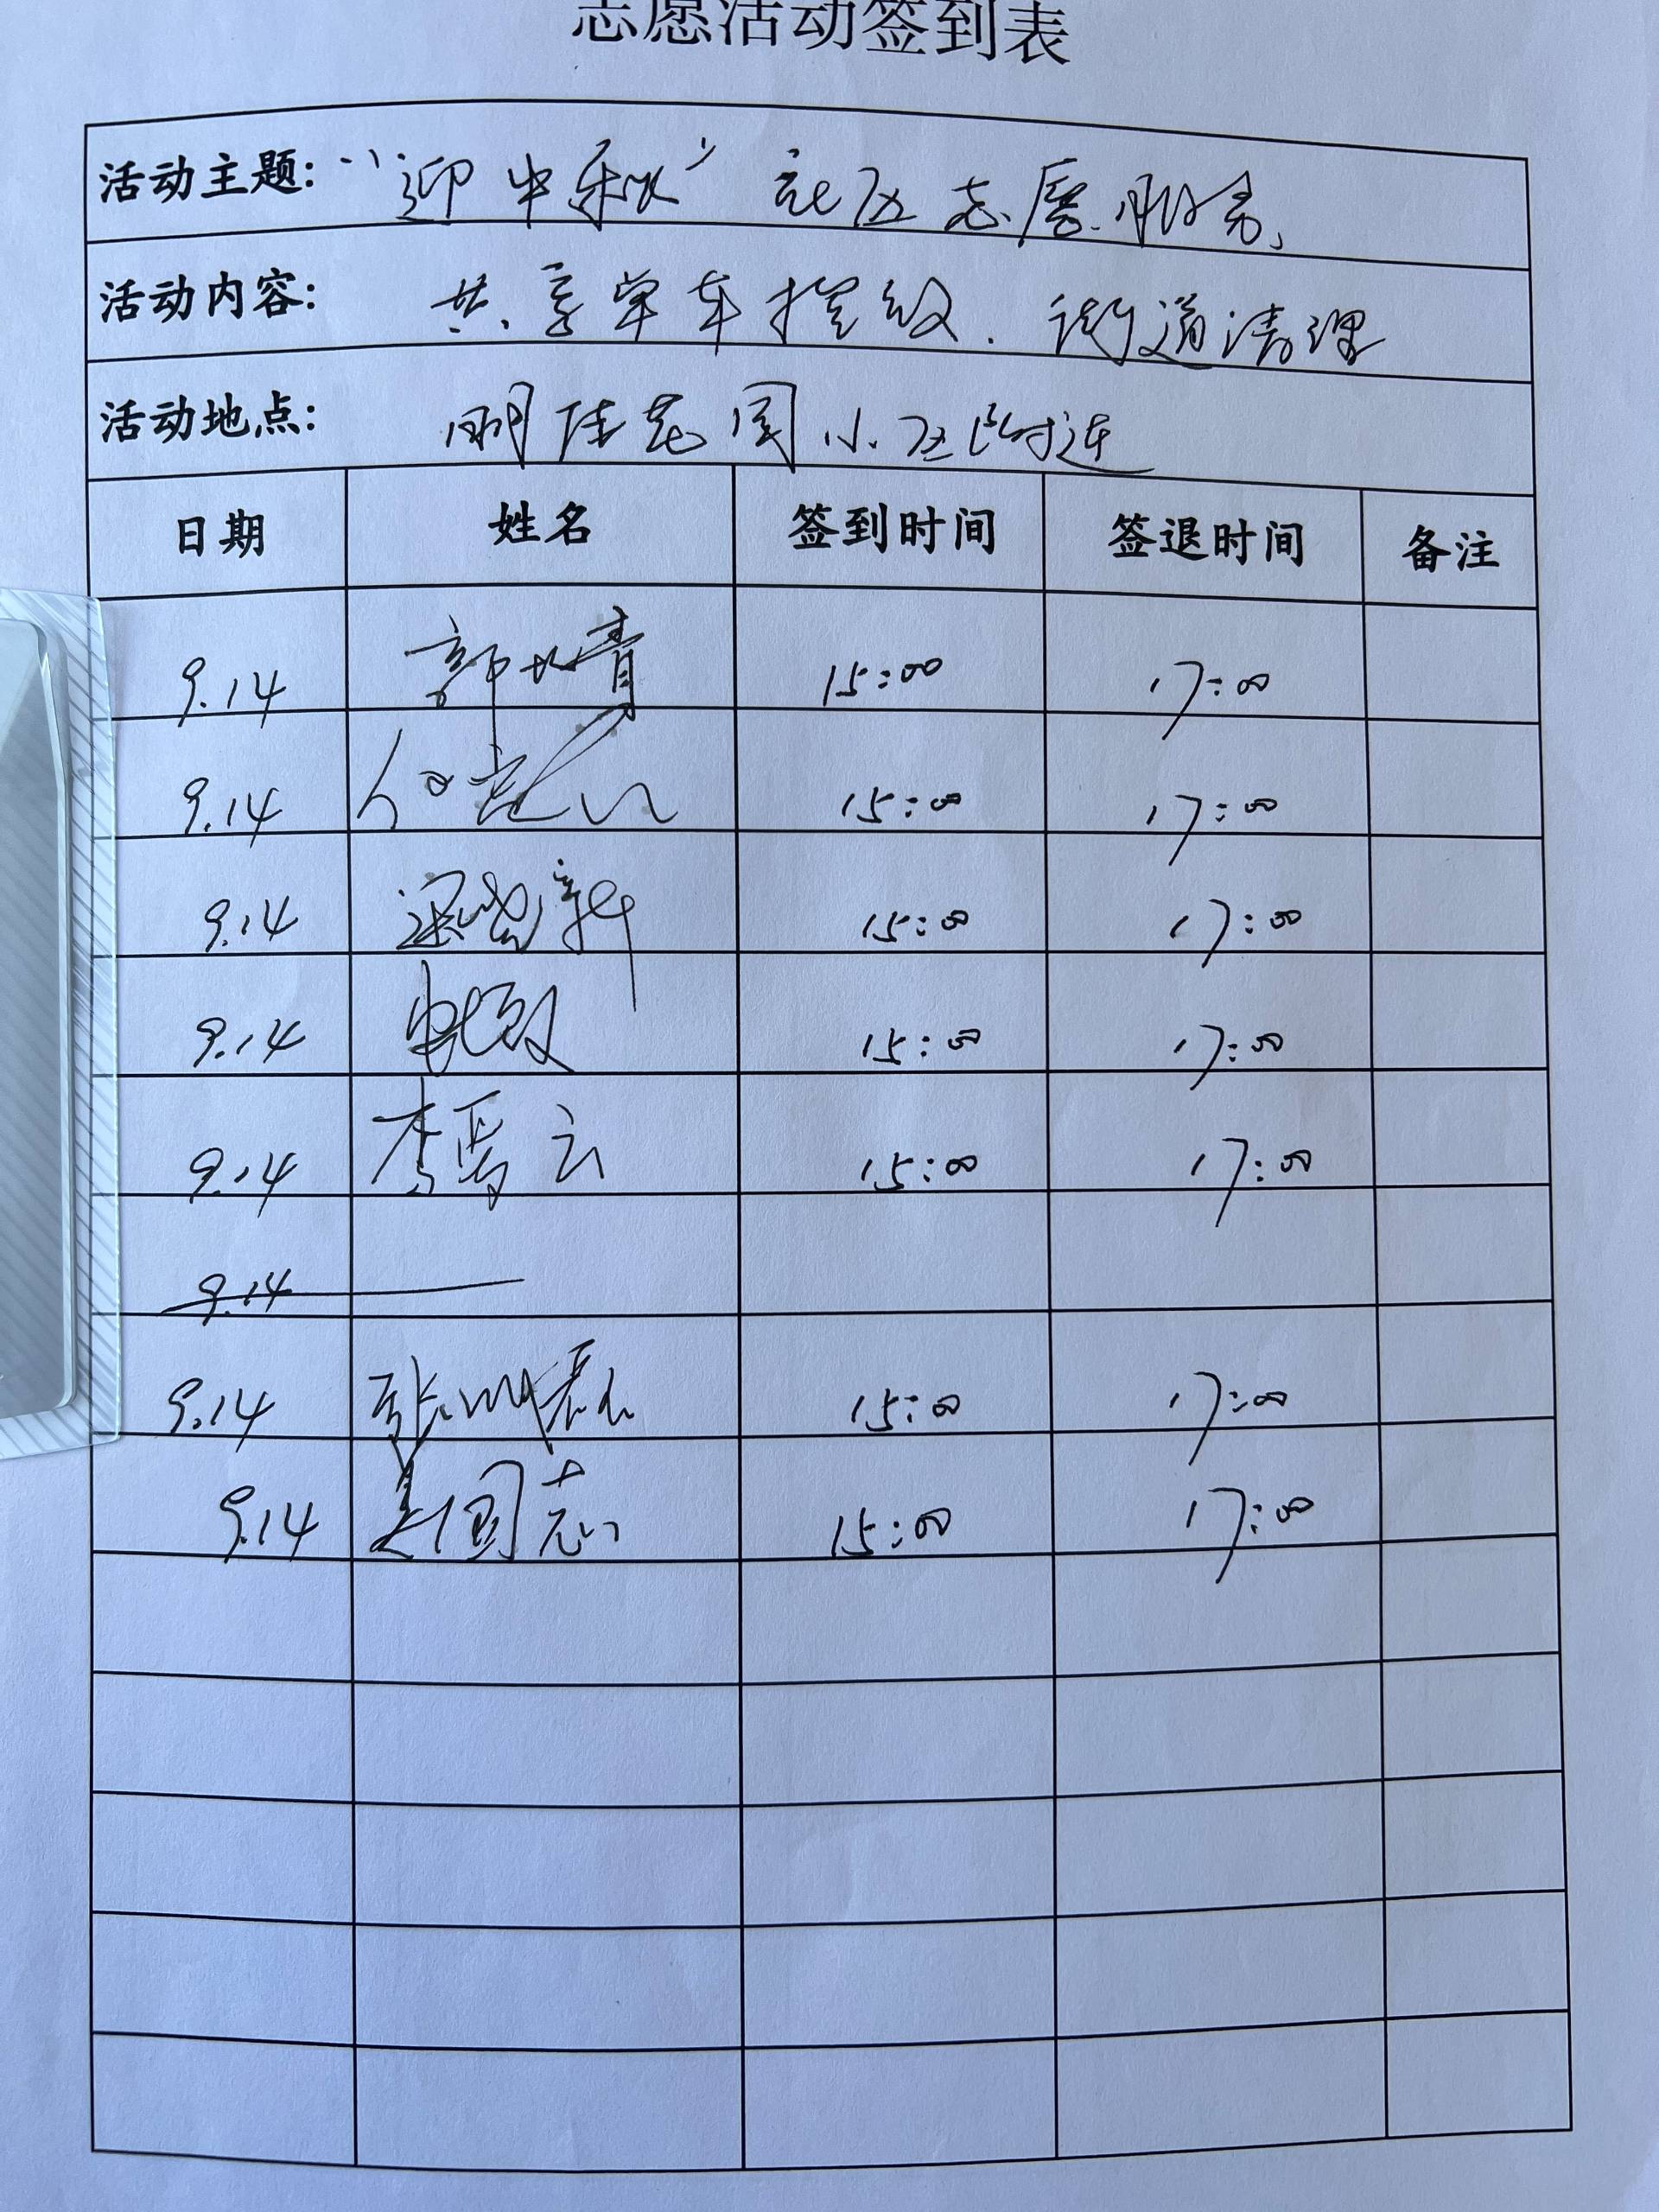 志愿活动签到表
活动主题: “迎中秋” 社区志愿服务
活动内容: 共享单车摆放. 街道清理
活动地点: 明佳花园小区附近
日期 姓名 签到时间 签退时间 备注
9.14 15:00 17:00
9.14 15:00 17:00
9.14 15:00 17:00
9.14 15:00 17:00
9.14 15:00 17:00
9.14
9.14 15:00 17:00
9.14 吴国志 15:00 17:00